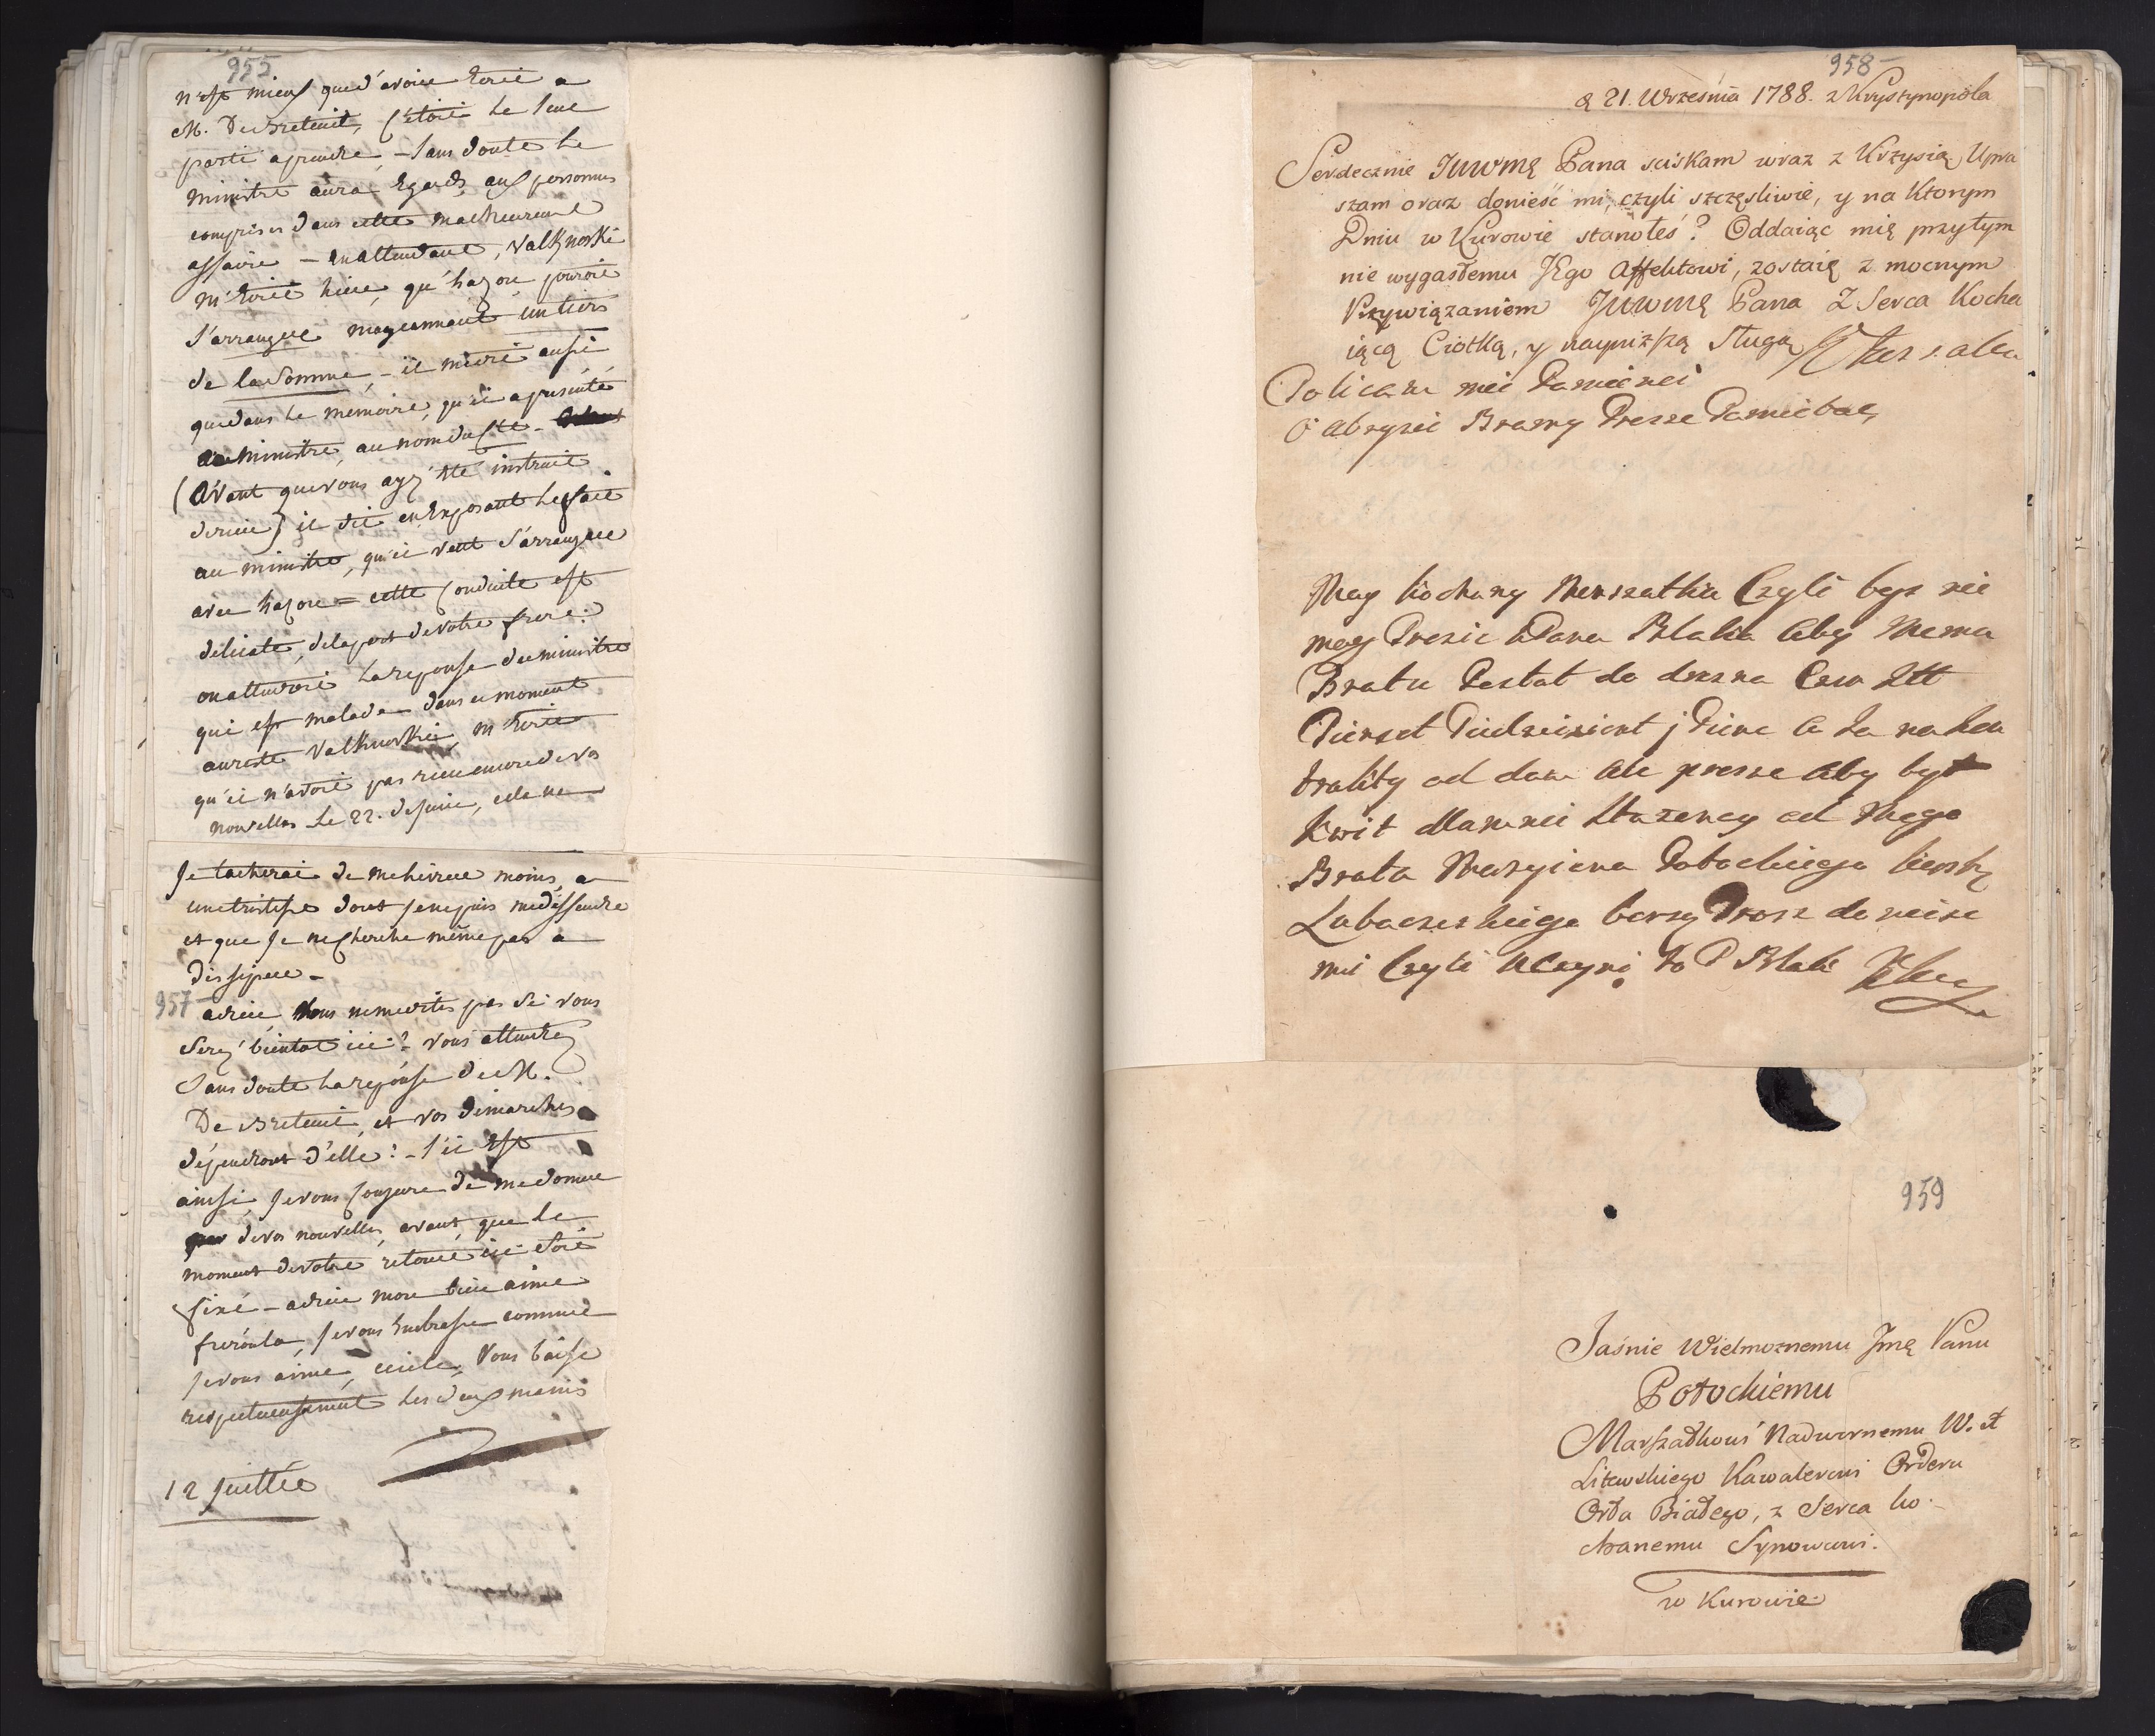 955
n'est mieux que d'avoir Ecrit a
M. De Breteuil, c'étoit le seul
parti a prendre, - sans doute le
ministre aura Egards aux personnes
comprises dans cette malheureuse
affaire - en attendant, Valknoski
m'Ecrit hier, qu'hazon pouroit
s'arranger moyeannant un tiers
de la Somme, - il m'ecrit aussi
que dans le mémoire, qu'il a presenté
au ministre, au nom du
(avant que vous ayéz été instruit
de rien) il dit en Exposant le fait
au ministre, qu'il veut s'arranger
avec hazon = cette conduite est
délicate, de la part de votre frere:
on attendroit la reponse du ministre
qui est malade dans ce moment
au reste Valknoskie, m'Ecrit
qu'il n'avoit pas recu encore de vos
nouvelles le 22. de juin, cela ne
Je tacherai de me livrer moins a
une tristesse dont je ne puis me déffendre
et que Je ne cherche même pas a
dissiper -
957
adieu, Vous ne me dites pas si vous
Seréz bientot ici? - vous attendréz
Sans doute la reponse de M.
De Breteuil, et vos démarches
dépendront d'elle: - s'il Est
ainsi, Je vous conjure de me donner
de vos nouvelles, avant que le
moment de votre retour ici soit
fixé - adieu mon bien aimé
je vous Embrasse comme
je vous aime, cecile, Vous baise
respectueusement les deux mains
12 juillet
958
d 21. Września 1788. z Krystynopola
Serdecznie JWWMę Pana sciskam wraz z Krzysią, Upra
szam oraz donieść mi, czyli szczęsliwie, y na Ktorym
Dniu w Kurowie stanołeś? Oddaiąc mię przytym
nie wygasłemu JEgo Affektowi, zostaię z mocnym
Przywiązaniem JWWMę Pana Z Serca Kocha
iącą Ciotką, y nayniższą Sługą
Policam mei Pamienci
O Abryssi Bramy Presze
May kochany Merszatku Czyli bys nie
mog Prosic Pana Blaka Aby Memu
Bratu
trakty od dam Ale prosze Aby był
kwit
Brata Maryiana Potockiego
Prosz doniesc
mi Czyli Uczyni to P Blak
959
Jaśnie Wielmoznemu Jmę Panu
Potockiemu
Marszałkowi Nadwornemu W. X
Litewskiego Kawalerowi Orderu
Orła Białego, z Serca ko-
chanemu Synowcowi.
w Kurowie